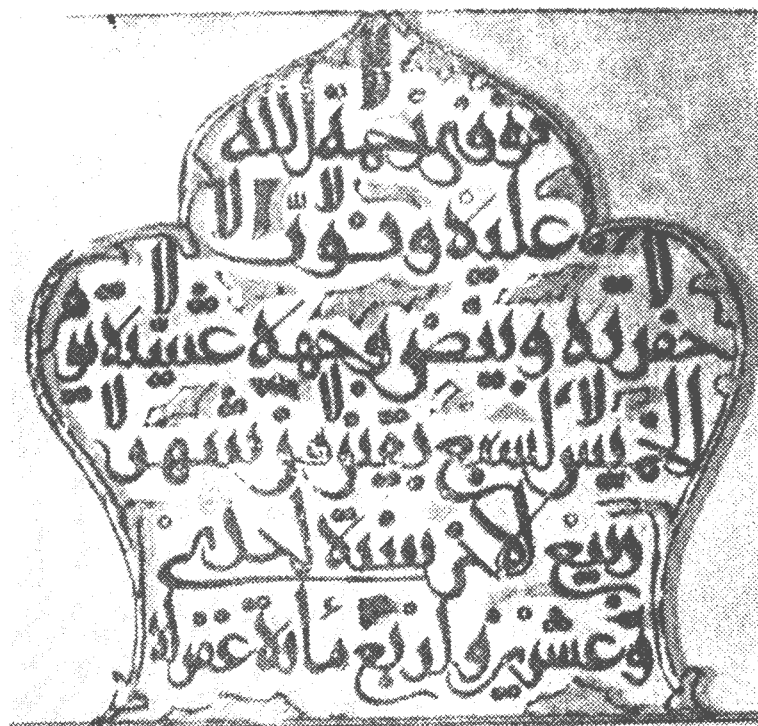 توفي رحمة الله
عليه ونور
حفرته وبيض وجهه عشية يوم
الخميس لسبع بقين من شهر
ربيع الاخر سنة احدى
وعشرين واربع مائة غفر